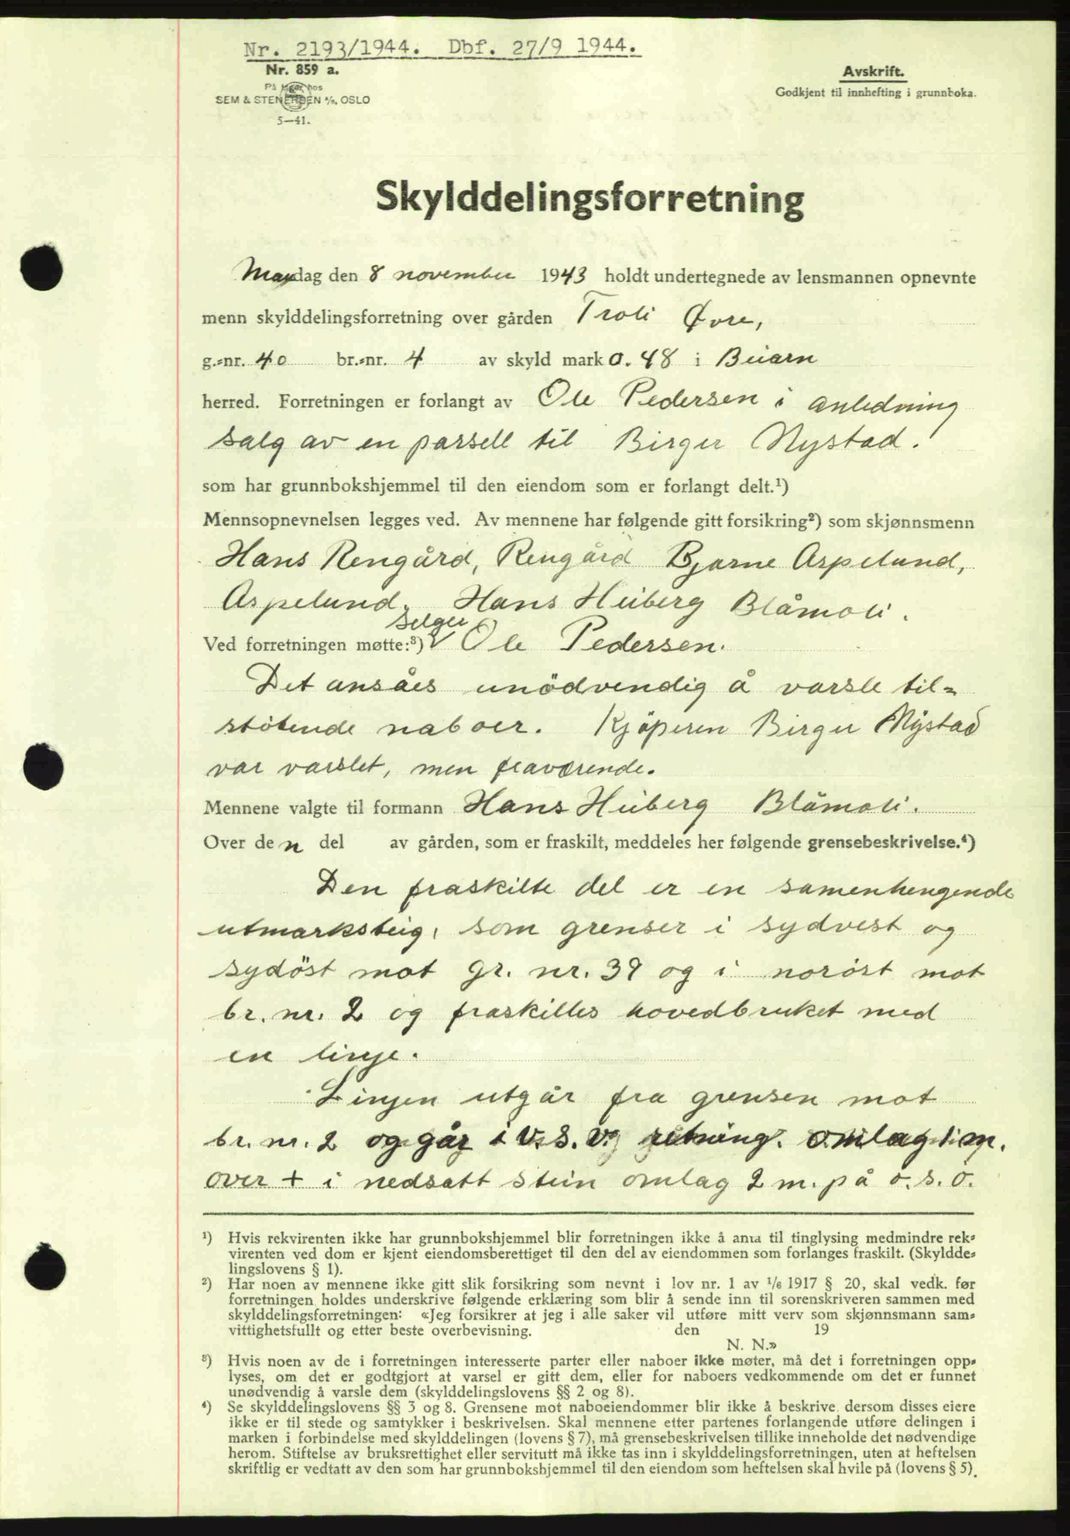 Nr. 2193/1944. Dbf. 27/9 1944.
Nr. 859 a.
På lager hos
SEM & STENERSEN A/S, OSLO
5—41.
Avskrift.
Godkjent til innhefting i grunnboka.
Skylddelingsforretning
Mandag den 8 november 1943 holdt undertegnede av lensmannen opnevnte
menn skylddelingsforretning over gården Troli Øvre,
g.-nr. 40 br.-nr. 4 av skyld mark 0.48 i Beiarn
herred. Forretningen er forlangt av Ole Pedersen i anledning
salg av en parsell til Birger Nystad.
som har grunnbokshjemmel til den eiendom som er forlangt delt.¹)
Mennsopnevnelsen legges ved. Av mennene har følgende gitt forsikring²) som skjønnsmenn
Hans Rengård, Rengård Bjarne Aspelund,
Aspelund, Hans Heiberg Blåmoli.
selger
Ved forretningen møtte:³) Ole Pedersen.
Det ansåes unödvendig å varsle til-
stötende naboer. Kjöperen Birger Nystad
var varslet, men fraværende.
Mennene valgte til formann Hans Heiberg Blåmoli.
Over den del av gården, som er fraskilt, meddeles her følgende grensebeskrivelse.⁴)
Den fraskilte del er en samenhengende
utmarksteig, som grenser i sydvest og
sydöst mot gr. nr. 39 og i noröst mot
br. nr. 2 og fraskilles hovedbruket med
en linje.
Linjen utgår fra grensen mot
br. nr. 2 og går i V.S.V. retning. omlag 1 m.
over + i nedsatt stein omlag 2 m. på ö.s.ö.
¹) Hvis rekvirenten ikke har grunnbokshjemmel blir forretningen ikke å anta til tinglysing medmindre rek-
virenten ved dom er kjent eiendomsberettiget til den del av eiendommen som forlanges fraskilt. (Skyldde-
lingslovens § 1).
²) Har noen av mennene ikke gitt slik forsikring som nevnt i lov nr. 1 av ¹/₆ 1917 § 20, skal vedk. før
forretningen holdes underskrive følgende erklæring som blir å sende inn til sorenskriveren sammen med
skylddelingsforretningen: «Jeg forsikrer at jeg i alle saker vil utføre mitt verv som skjønnsmann sam-
vittighetsfullt og etter beste overbevisning. den 19
N. N.»
³) Hvis noen av de i forretningen interesserte parter eller naboer ikke møter, må det i forretningen opp-
lyses, om det er godtgjort at varsel er gitt dem, eller for naboers vedkommende om det er funnet
unødvendig å varsle dem (skylddelingslovens §§ 2 og 8).
⁴) Se skylddelingslovens §§ 3 og 8. Grensene mot naboeiendommer blir ikke å beskrive dersom disses eiere
ikke er til stede og samtykker i beskrivelsen. Skal mennene etter partenes forlangende utføre delingen i
marken i forbindelse med skylddelingen (lovens § 7), må grensebeskrivelsen tillike inneholde det nødvendige
herom. Stiftelse av bruksrettighet eller servitutt må ikke tas inn i skylddelingsforretningen, uten at heftelsen
skriftlig er vedtatt av den som har grunnbokshjemmel til den eiendom som heftelsen skal hvile på (lovens § 5).